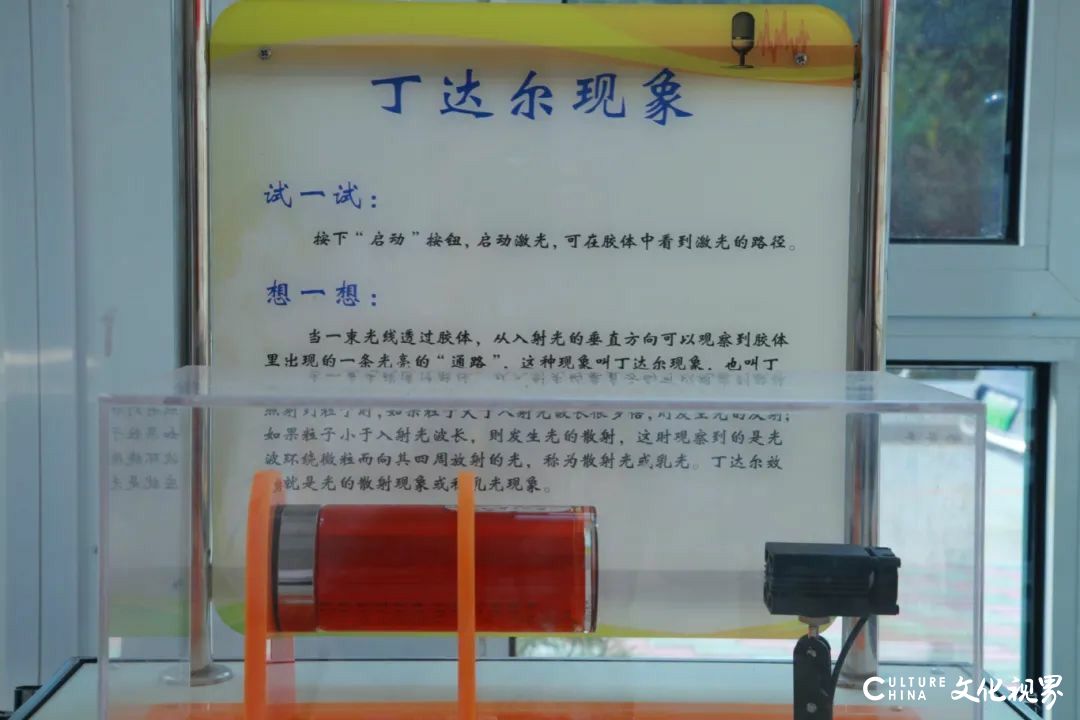 丁达尔现象
试一试：
按下“启动”按钮，启动激光，可在胶体中看到激光的路径。
想一想：
当一束光线透过胶体，从入射光的垂直方向可以观察到胶体
里出现的一条光亮的“通路”，这种现象叫丁达尔现象，也叫丁
照射到粒子时，如果粒子大于入射光波长很多倍，则发生光的反射；
如果粒子小于入射光波长，则发生光的散射，这时观察到的是光
波环绕微粒而向其四周放射的光，称为散射光或乳光。丁达尔效
就是光的散射现象或称乳光现象。
CULTURE
CHINA 文化视界